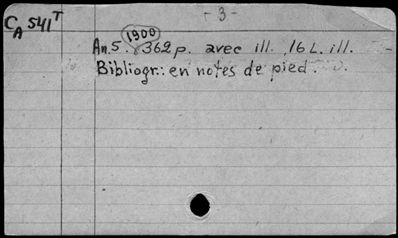 - 3 -
CA 541 T
1900
An. 5. 362 p. avec ill., 16 L. ill.
Bibliogr.: en notes de pied.